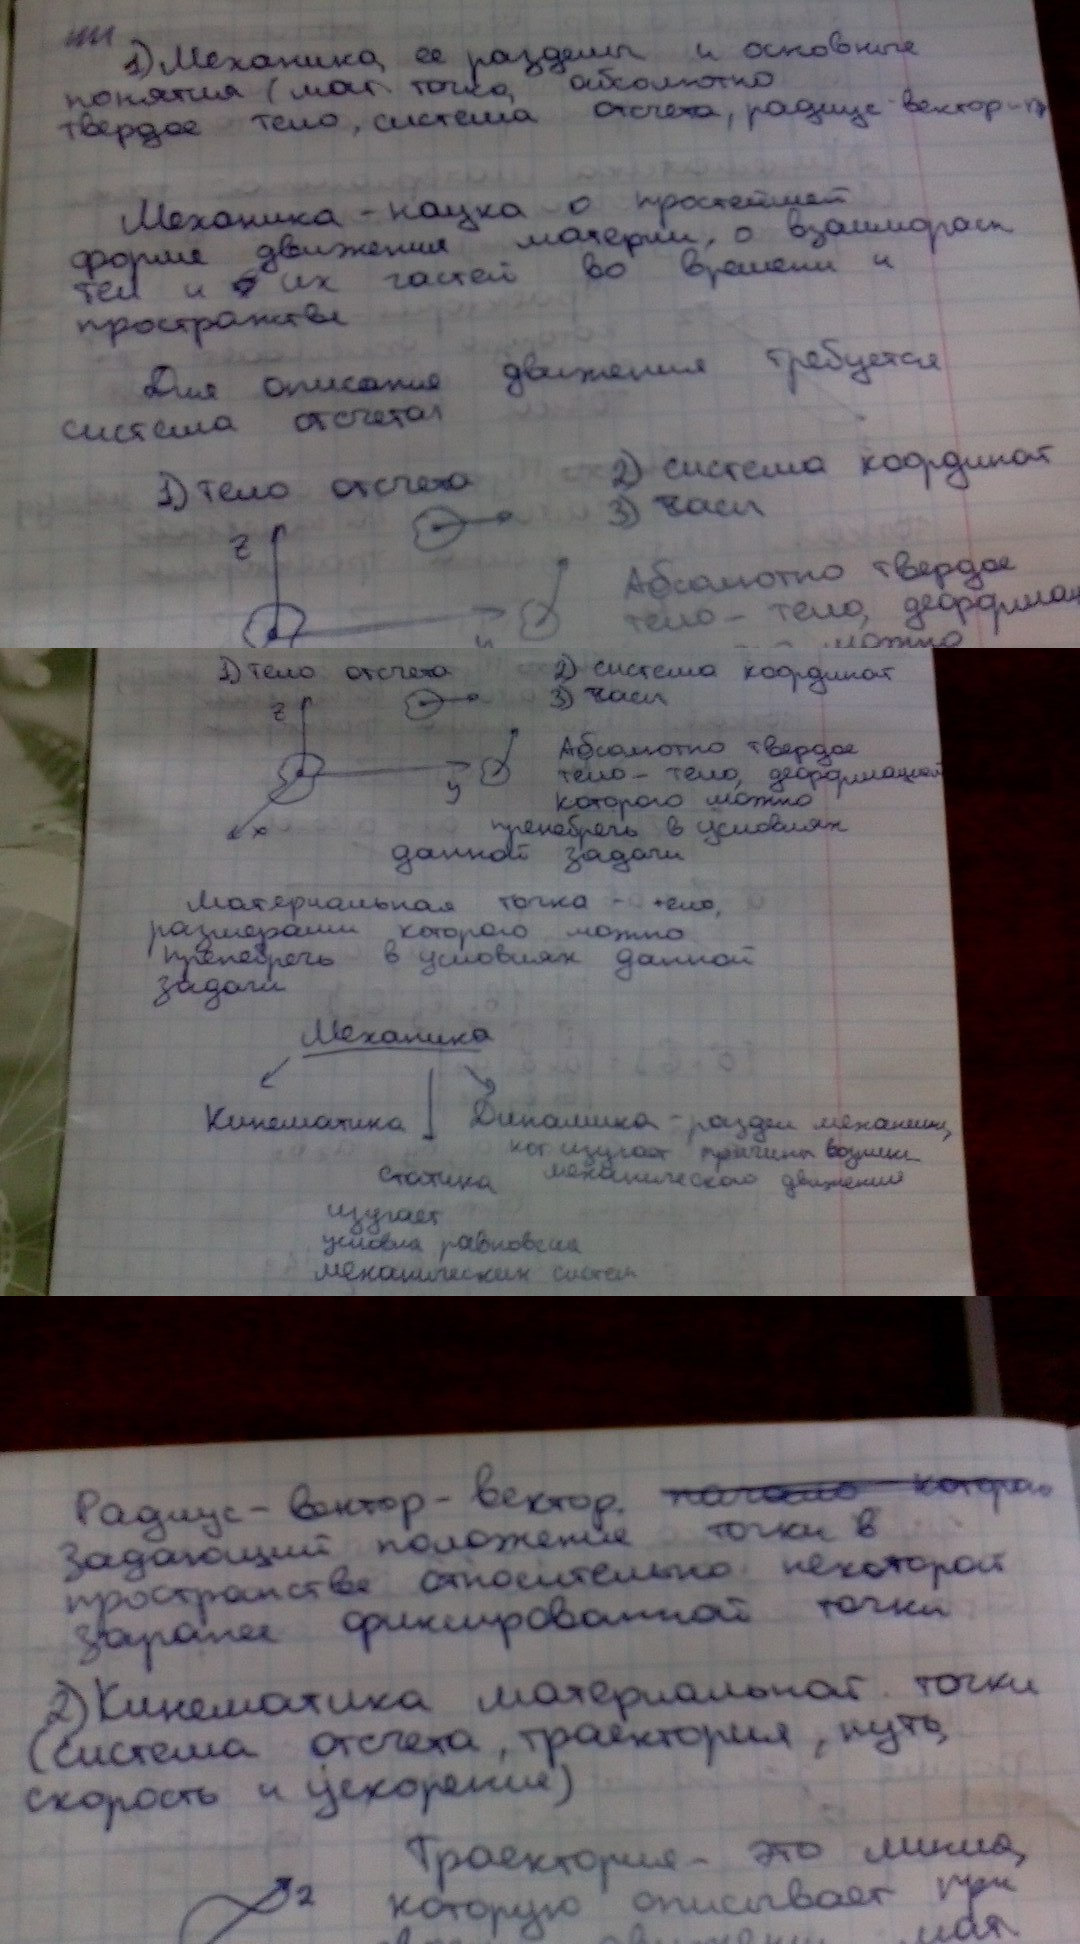 1) Механика, ее разделы и основные
понятия (мат. точка, абсолютно
твердое тело, система отсчета, радиус-вектор
Механика - наука о простейшей
форме движения материи, о взаимодраси
тел и их частей во времени и
пространстве
Для описания движения требуется
система отсчета
1) тело отсчета
2) система координат
3) часы
z
Абсолютно твердое
тело - тело, деформац
можно
1) тело отсчета
2) система координат
3) часы
z
y
x
Абсолютно твердое
тело - тело, деформацией
которого можно
пренебречь в условиях
данной задачи
Материальная точка - тело,
размерами которого можно
пренебречь в условиях данной
задачи
Механика
Кинематика
Динамика - раздел механики,
кот изучает причины возникн
механического движения
Статика
изучает
условия равновесия
механических систем
Радиус-вектор - вектор,
задающий положение точки в
пространстве относительно некоторой
заранее фиксированной точки
2) Кинематика материальной точки
(система отсчета, траектория, путь,
скорость и ускорение)
Траектория - это линия,
2
которую описывает при
мат.